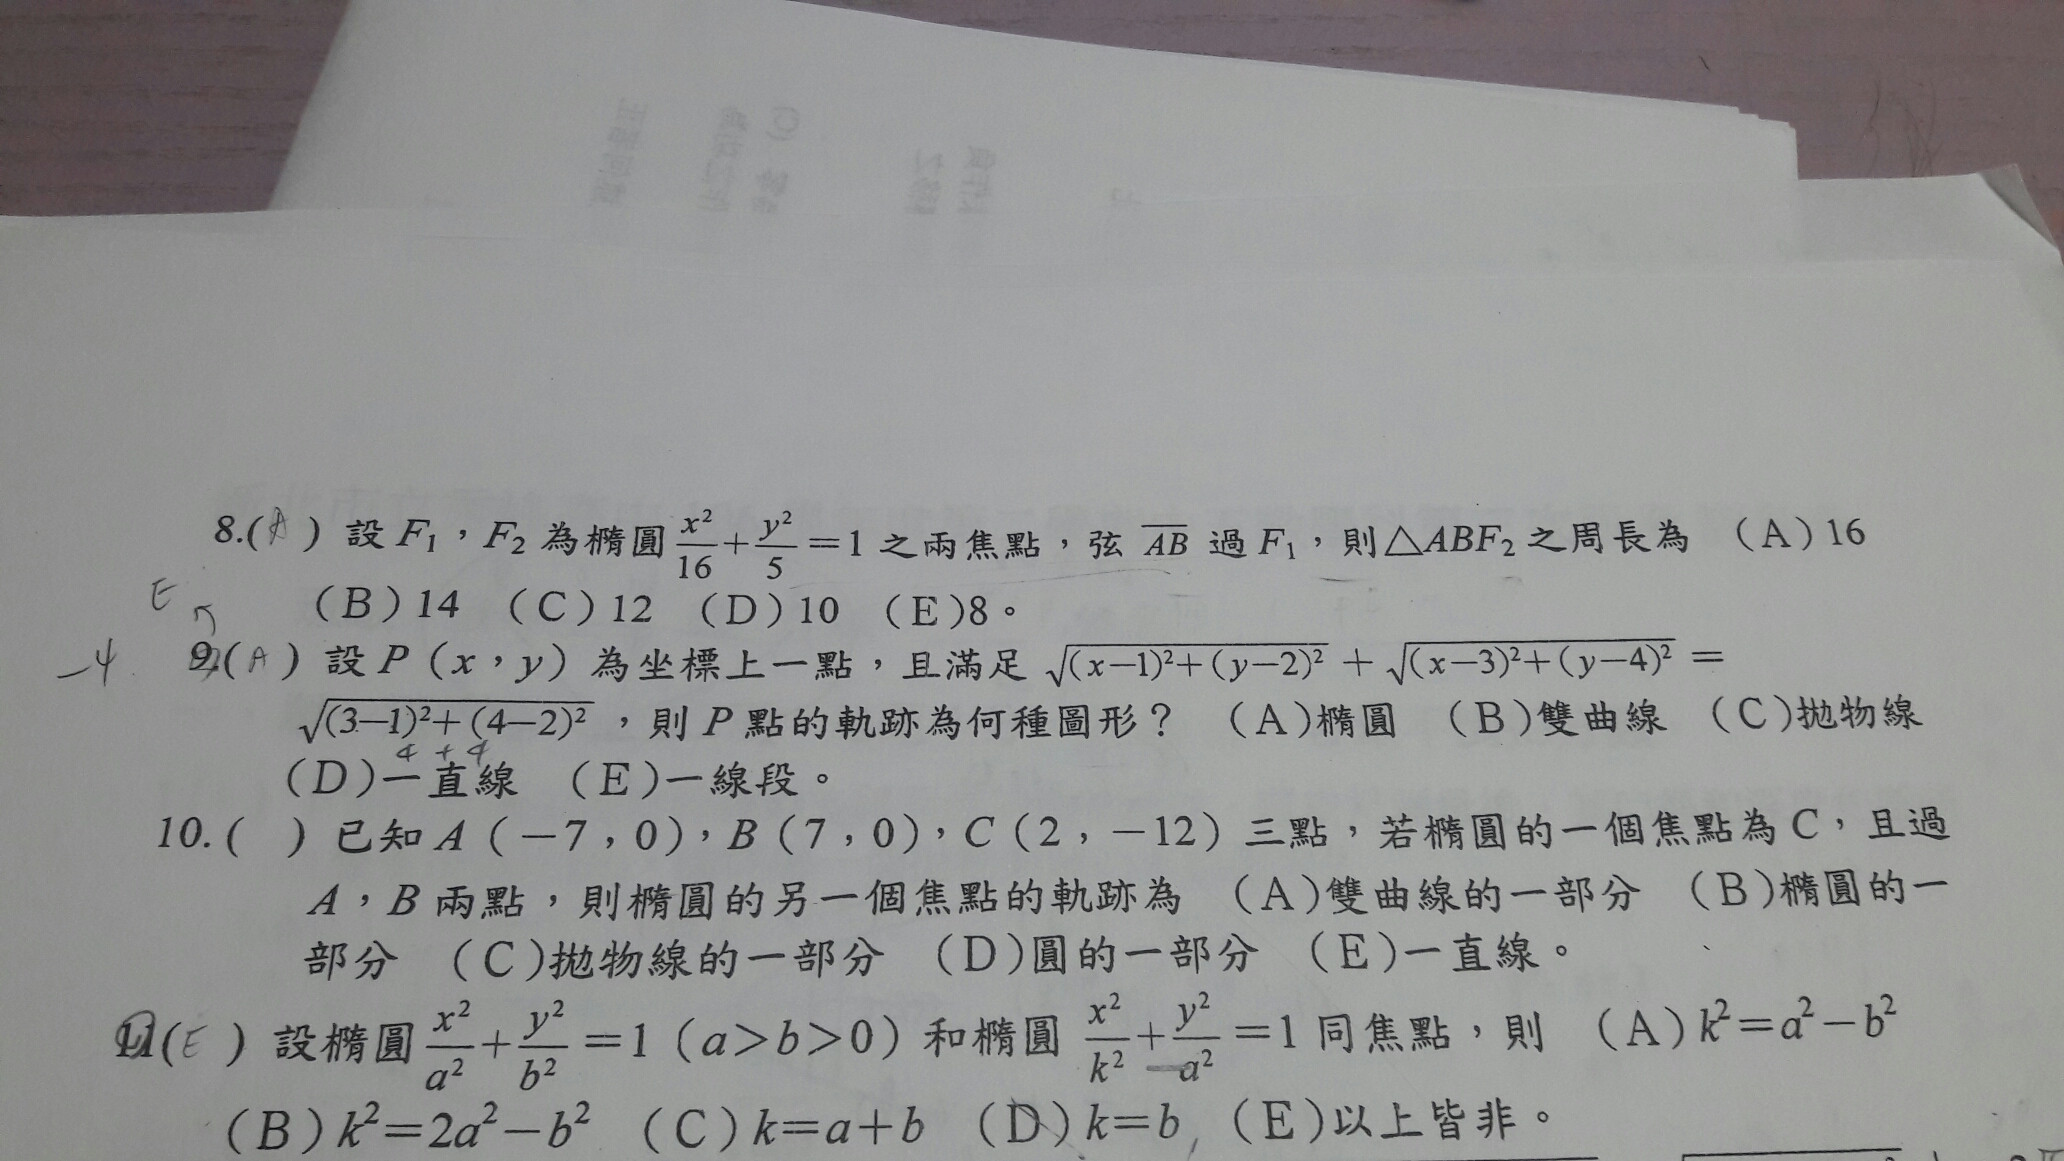 8.(A) 設 F₁,F₂ 為橢圓 x²/16+y²/5=1 之兩焦點,弦 AB 過 F₁,則△ABF₂ 之周長為 (A)16
(B)14 (C)12 (D)10 (E)8。
E
-4
9.(A) 設 P(x,y)為坐標上一點,且滿足 √((x-1)²+(y-2)²) + √((x-3)²+(y-4)²) =
√((3-1)²+(4-2)²),則 P 點的軌跡為何種圖形? (A)橢圓 (B)雙曲線 (C)拋物線
4+4
(D)一直線 (E)一線段。
10.( ) 已知 A(-7,0),B(7,0),C(2,-12)三點,若橢圓的一個焦點為 C,且過
A,B 兩點,則橢圓的另一個焦點的軌跡為 (A)雙曲線的一部分 (B)橢圓的一
部分 (C)拋物線的一部分 (D)圓的一部分 (E)一直線。
11.(E) 設橢圓 x²/a²+y²/b²=1(a>b>0)和橢圓 x²/k²+y²/a²=1 同焦點,則 (A)k²=a²-b²
(B)k²=2a²-b² (C)k=a+b (D)k=b (E)以上皆非。